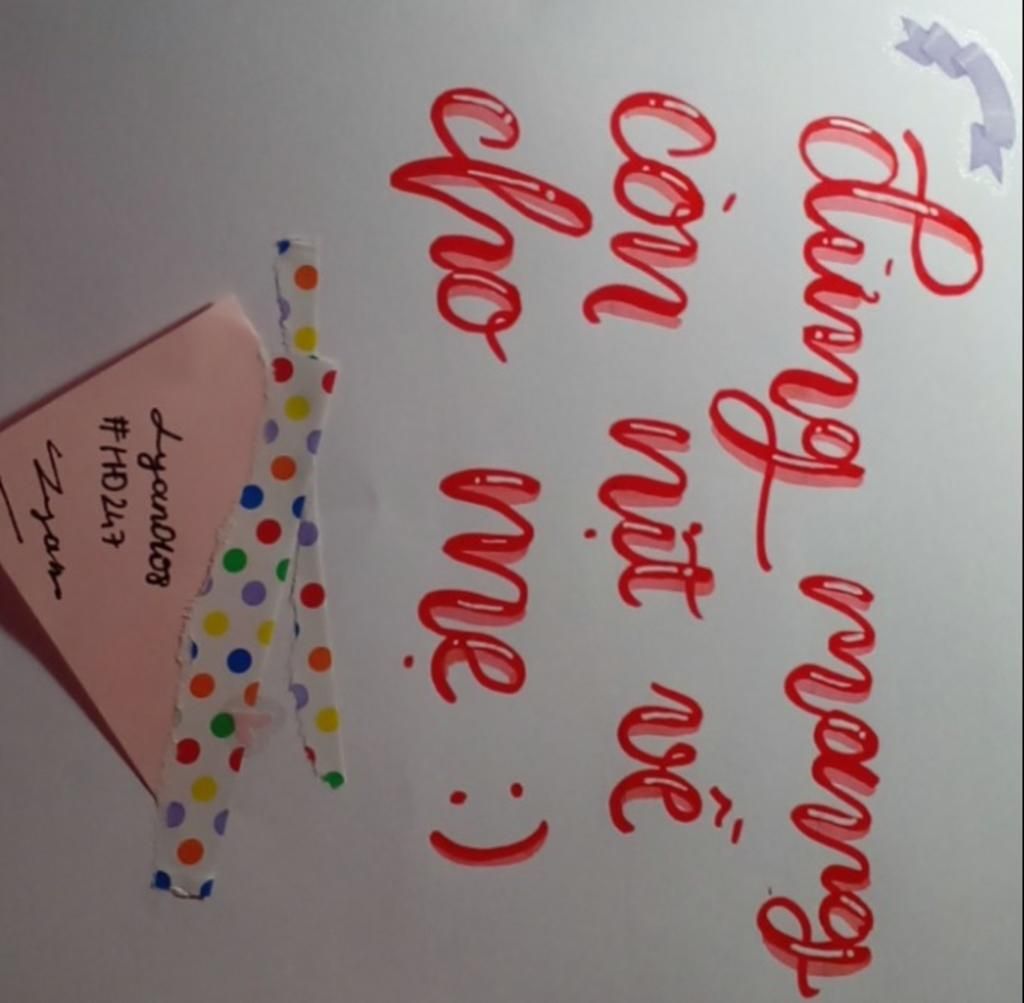 đừng mang
còn nịt về
cho mẹ :)
Lyan0108
#HD247